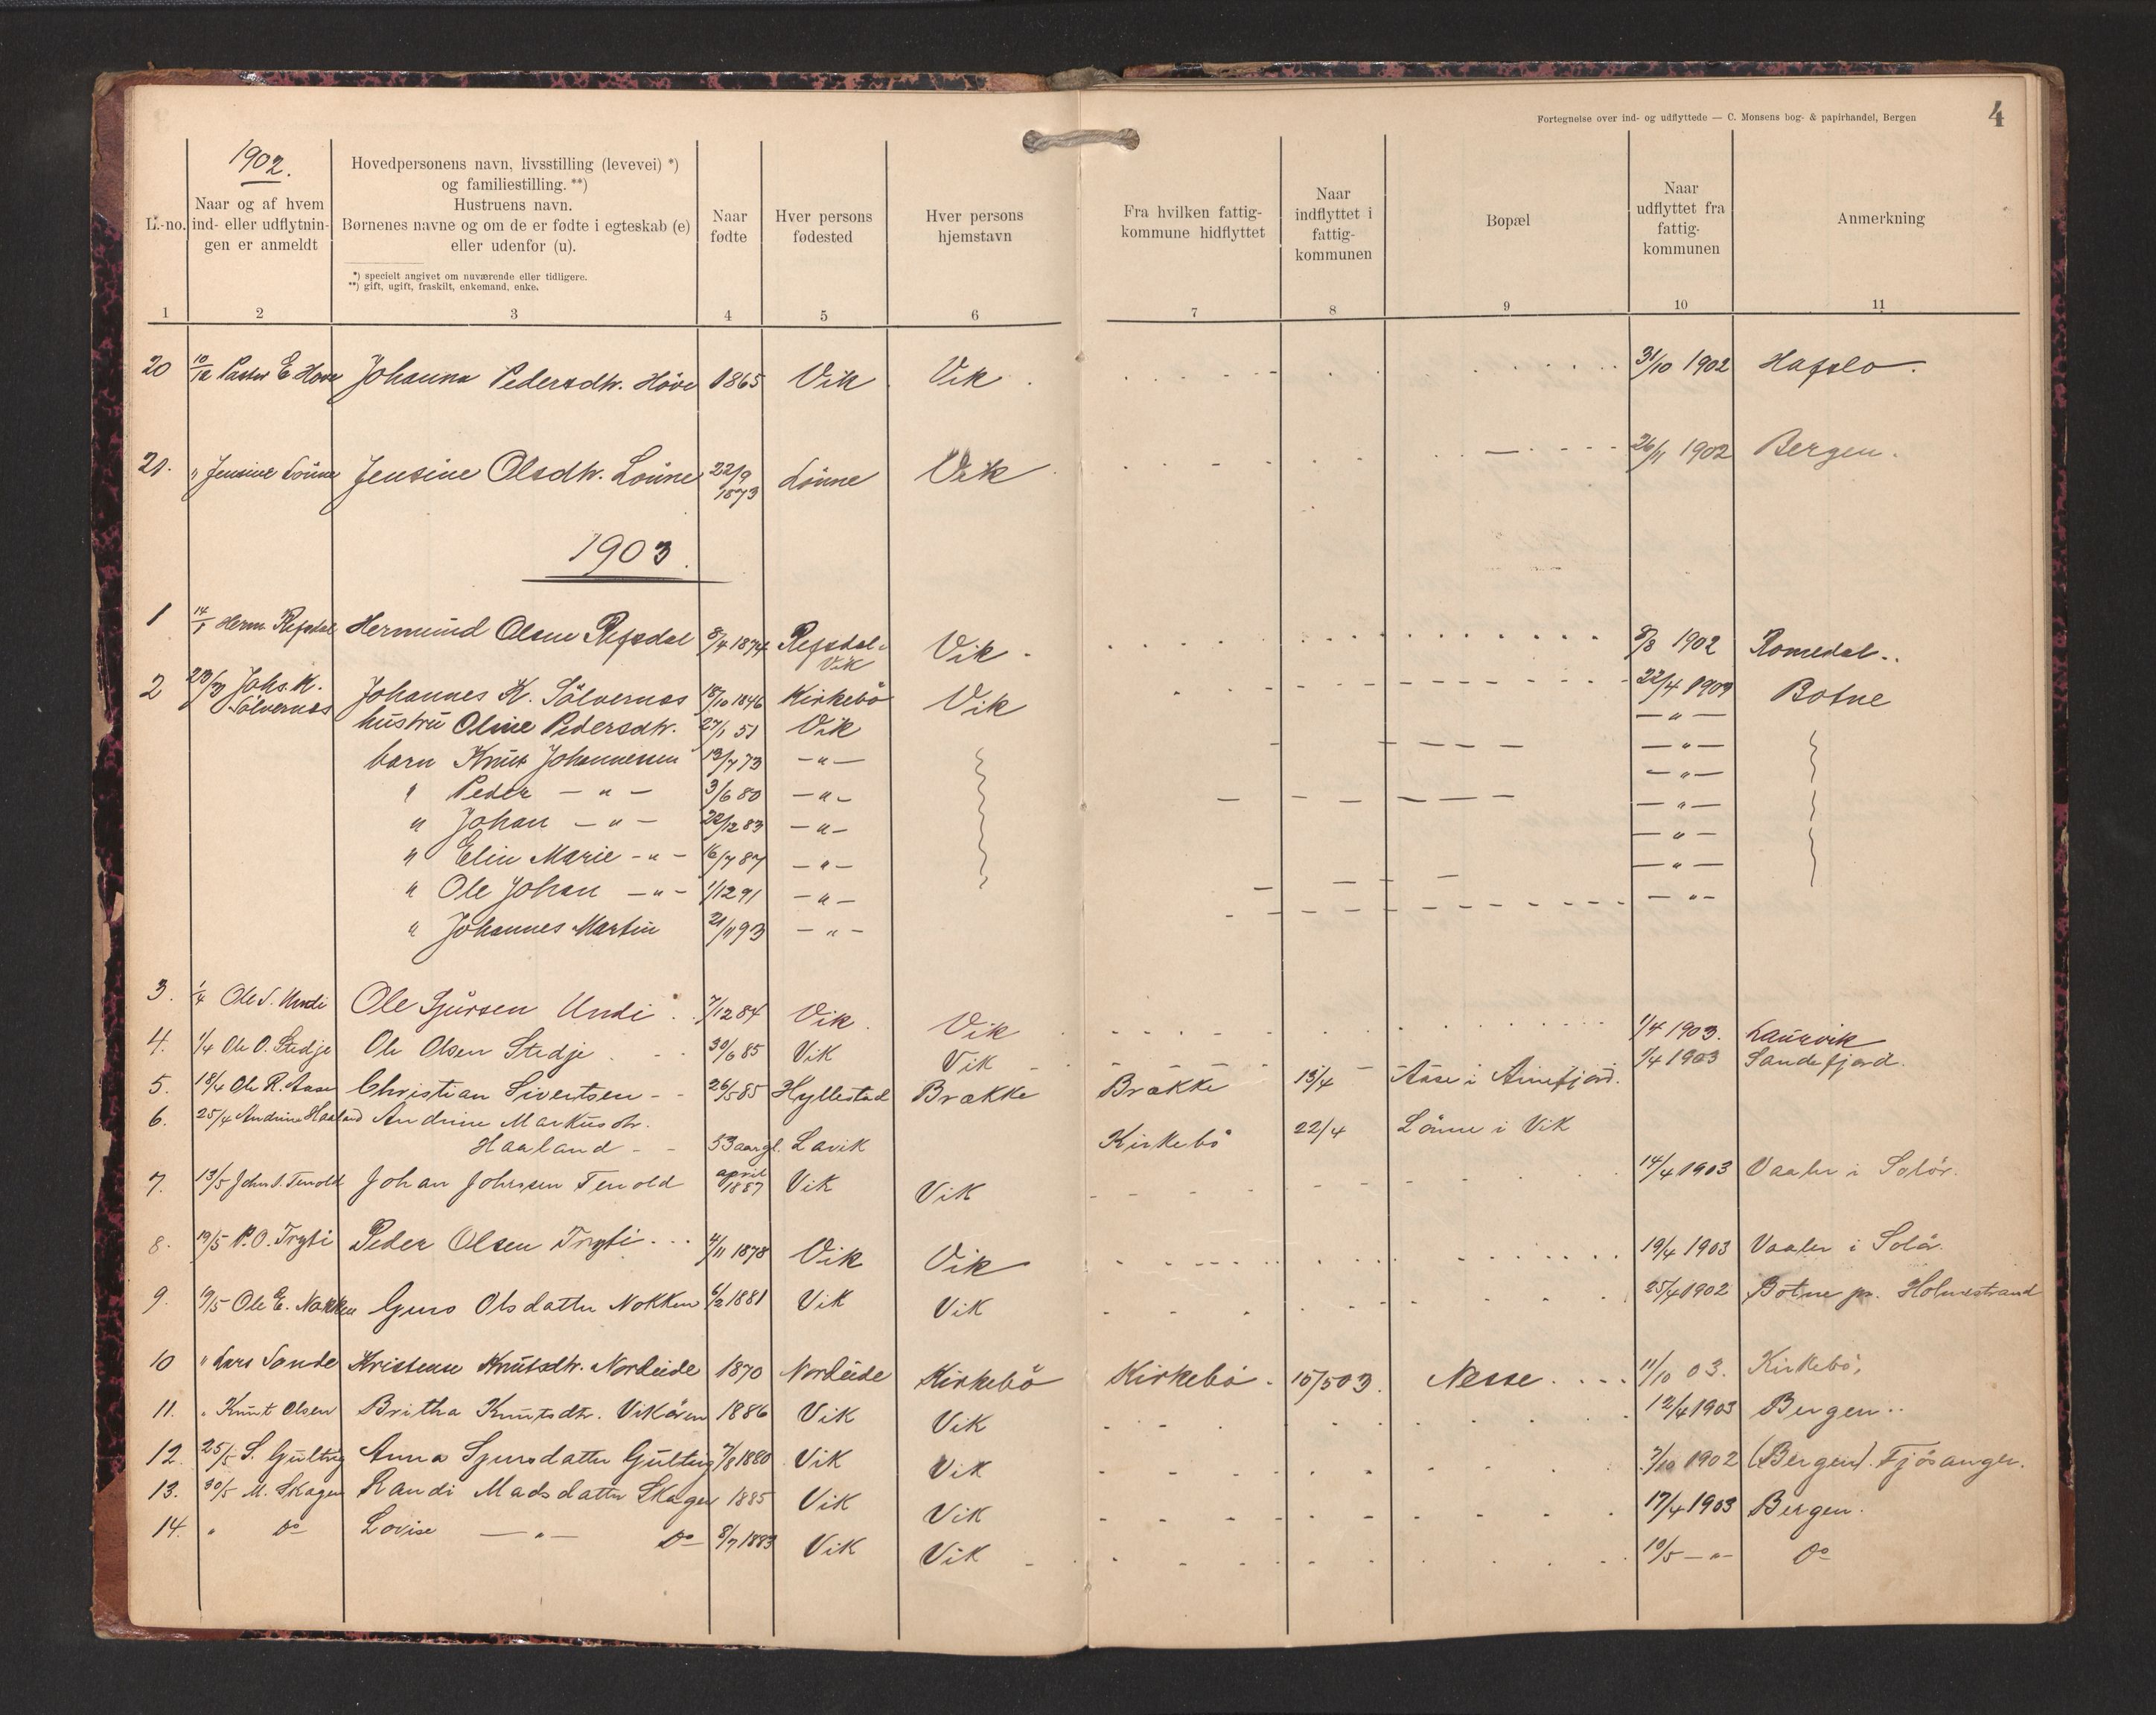 Fortegnelse over ind- og udflyttede — C. Monsens bog- & papirhandel, Bergen
4
1902.
L.-no.
Naar og af hvem ind- eller udflytnin-gen er anmeldt
Hovedpersonens navn, livsstilling (levevei) *)
og familiestilling. **)
Hustruens navn.
Børnenes navne og om de er fødte i egteskab (e)
eller udenfor (u).
*) specielt angivet om nuværende eller tidligere.
**) gift, ugift, fraskilt, enkemand, enke.
Naar fødte
Hver persons fødested
Hver persons hjemstavn
Fra hvilken fattig-kommune hidflyttet
Naar indflyttet i fattig-kommunen
Bopæl
Naar udflyttet fra fattig-kommunen
Anmerkning
1 2 3 4 5 6 7 8 9 10 11
20 10/12 Pastor E Hove Johanna Pedersdtr. Höve 1865 Vik Vik 31/10 1902 Hafslo.
21. " Jensine Lönne Jensine Olsdtr. Lönne 22/9 1873 Lönne Vik 26/11 1902 Bergen.
1903.
1 14/1 Herm. Refsdal Hermund Olsen Refsdal 8/4 1874 Refsdal Vik Vik 8/8 1902 Romedal..
2 23/3 Johs. K. Sölvernes Johannes K. Sölvernes 18/10 1846 Kirkebö Vik 22/4 1903 Botne
hustru Oline Pedersdtr. 27/1 51 Vik — " —
barn Knut Johannesen 13/7 73 — " — — " —
" Peder — " — 3/6 80 — " — — " —
" Johan — " — 22/12 83 — " — — " —
" Elin Marie — " — 16/7 87 — " — — " —
" Ole Johan — " — 1/12 91 — " — — " —
" Johannes Martin 21/11 93 — " — — " —
3. 1/4 Ole S. Undi Ole Sjursen Undi 7/12 84 Vik Vik 1/4 1903. Laurvik
4. 1/4 Ole O. Stedje Ole Olsen Stedje 30/6 85 Vik Vik 1/4 1903 Sandefjord.
5. 18/4 Ole R. Aase Christian Sivertsen 26/5 85 Hyllestad Brække Brække 13/4 Aase i Arnefjord.
6. 25/4 Andrine Haaland Andrine Markusdtr.
Haaland 53 aar gl. Lavik Kirkebö 22/4 Lönne i Vik
7. 13/5 Johs. J. Tenold Johan Johnsen Tenold april 1887 Vik Vik 14/4 1903 Vaaler i Solör.
8. 19/5 P. O. Tryti Peder Olsen Tryti 4/11 1878 Vik Vik 19/4 1903 Vaaler i Solör.
9. 19/5 Ole E. Nokken Guro Olsdatter Nokken 6/2 1881 Vik Vik 25/4 1902 Botne pr. Holmestrand
10 " Lars Sande Kristense Knutsdtr. Nordeide 1870 Nordeide Kirkebö Kirkebö 15/5 03. Nesse 11/10 03. Kirkebö.
11. " Knut Olsen Britha Knutsdtr. Vikören 1886 Vik Vik 12/4 1903 Bergen..
12. 25/5 S. Gulteig Anna Sjursdatter Gulteig 7/8 1880 Vik Vik 7/10 1902 (Bergen). Fjösanger.
13. 30/5 M. Skagen Randi Madsdatter Skagen 1885 Vik Vik 17/4 1903 Bergen.
14. " Do Lovise — " — Do 8/7 1883 Vik Vik 10/5 — " — Do